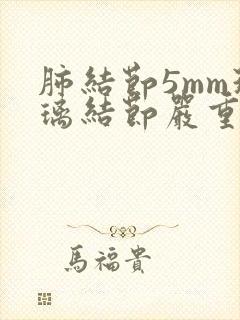 肺結節5mm
璃結節嚴重
馬福貴